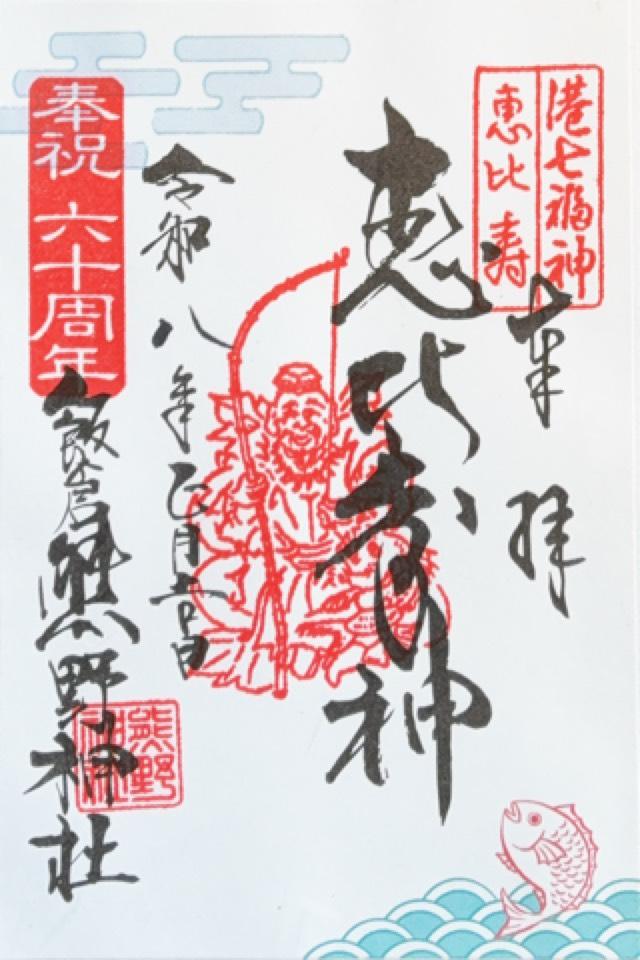 港七福神
恵比寿
奉拝
恵比寿神
令和八年正月五日
奉祝 六十周年
飯倉熊野神社
熊野
神社